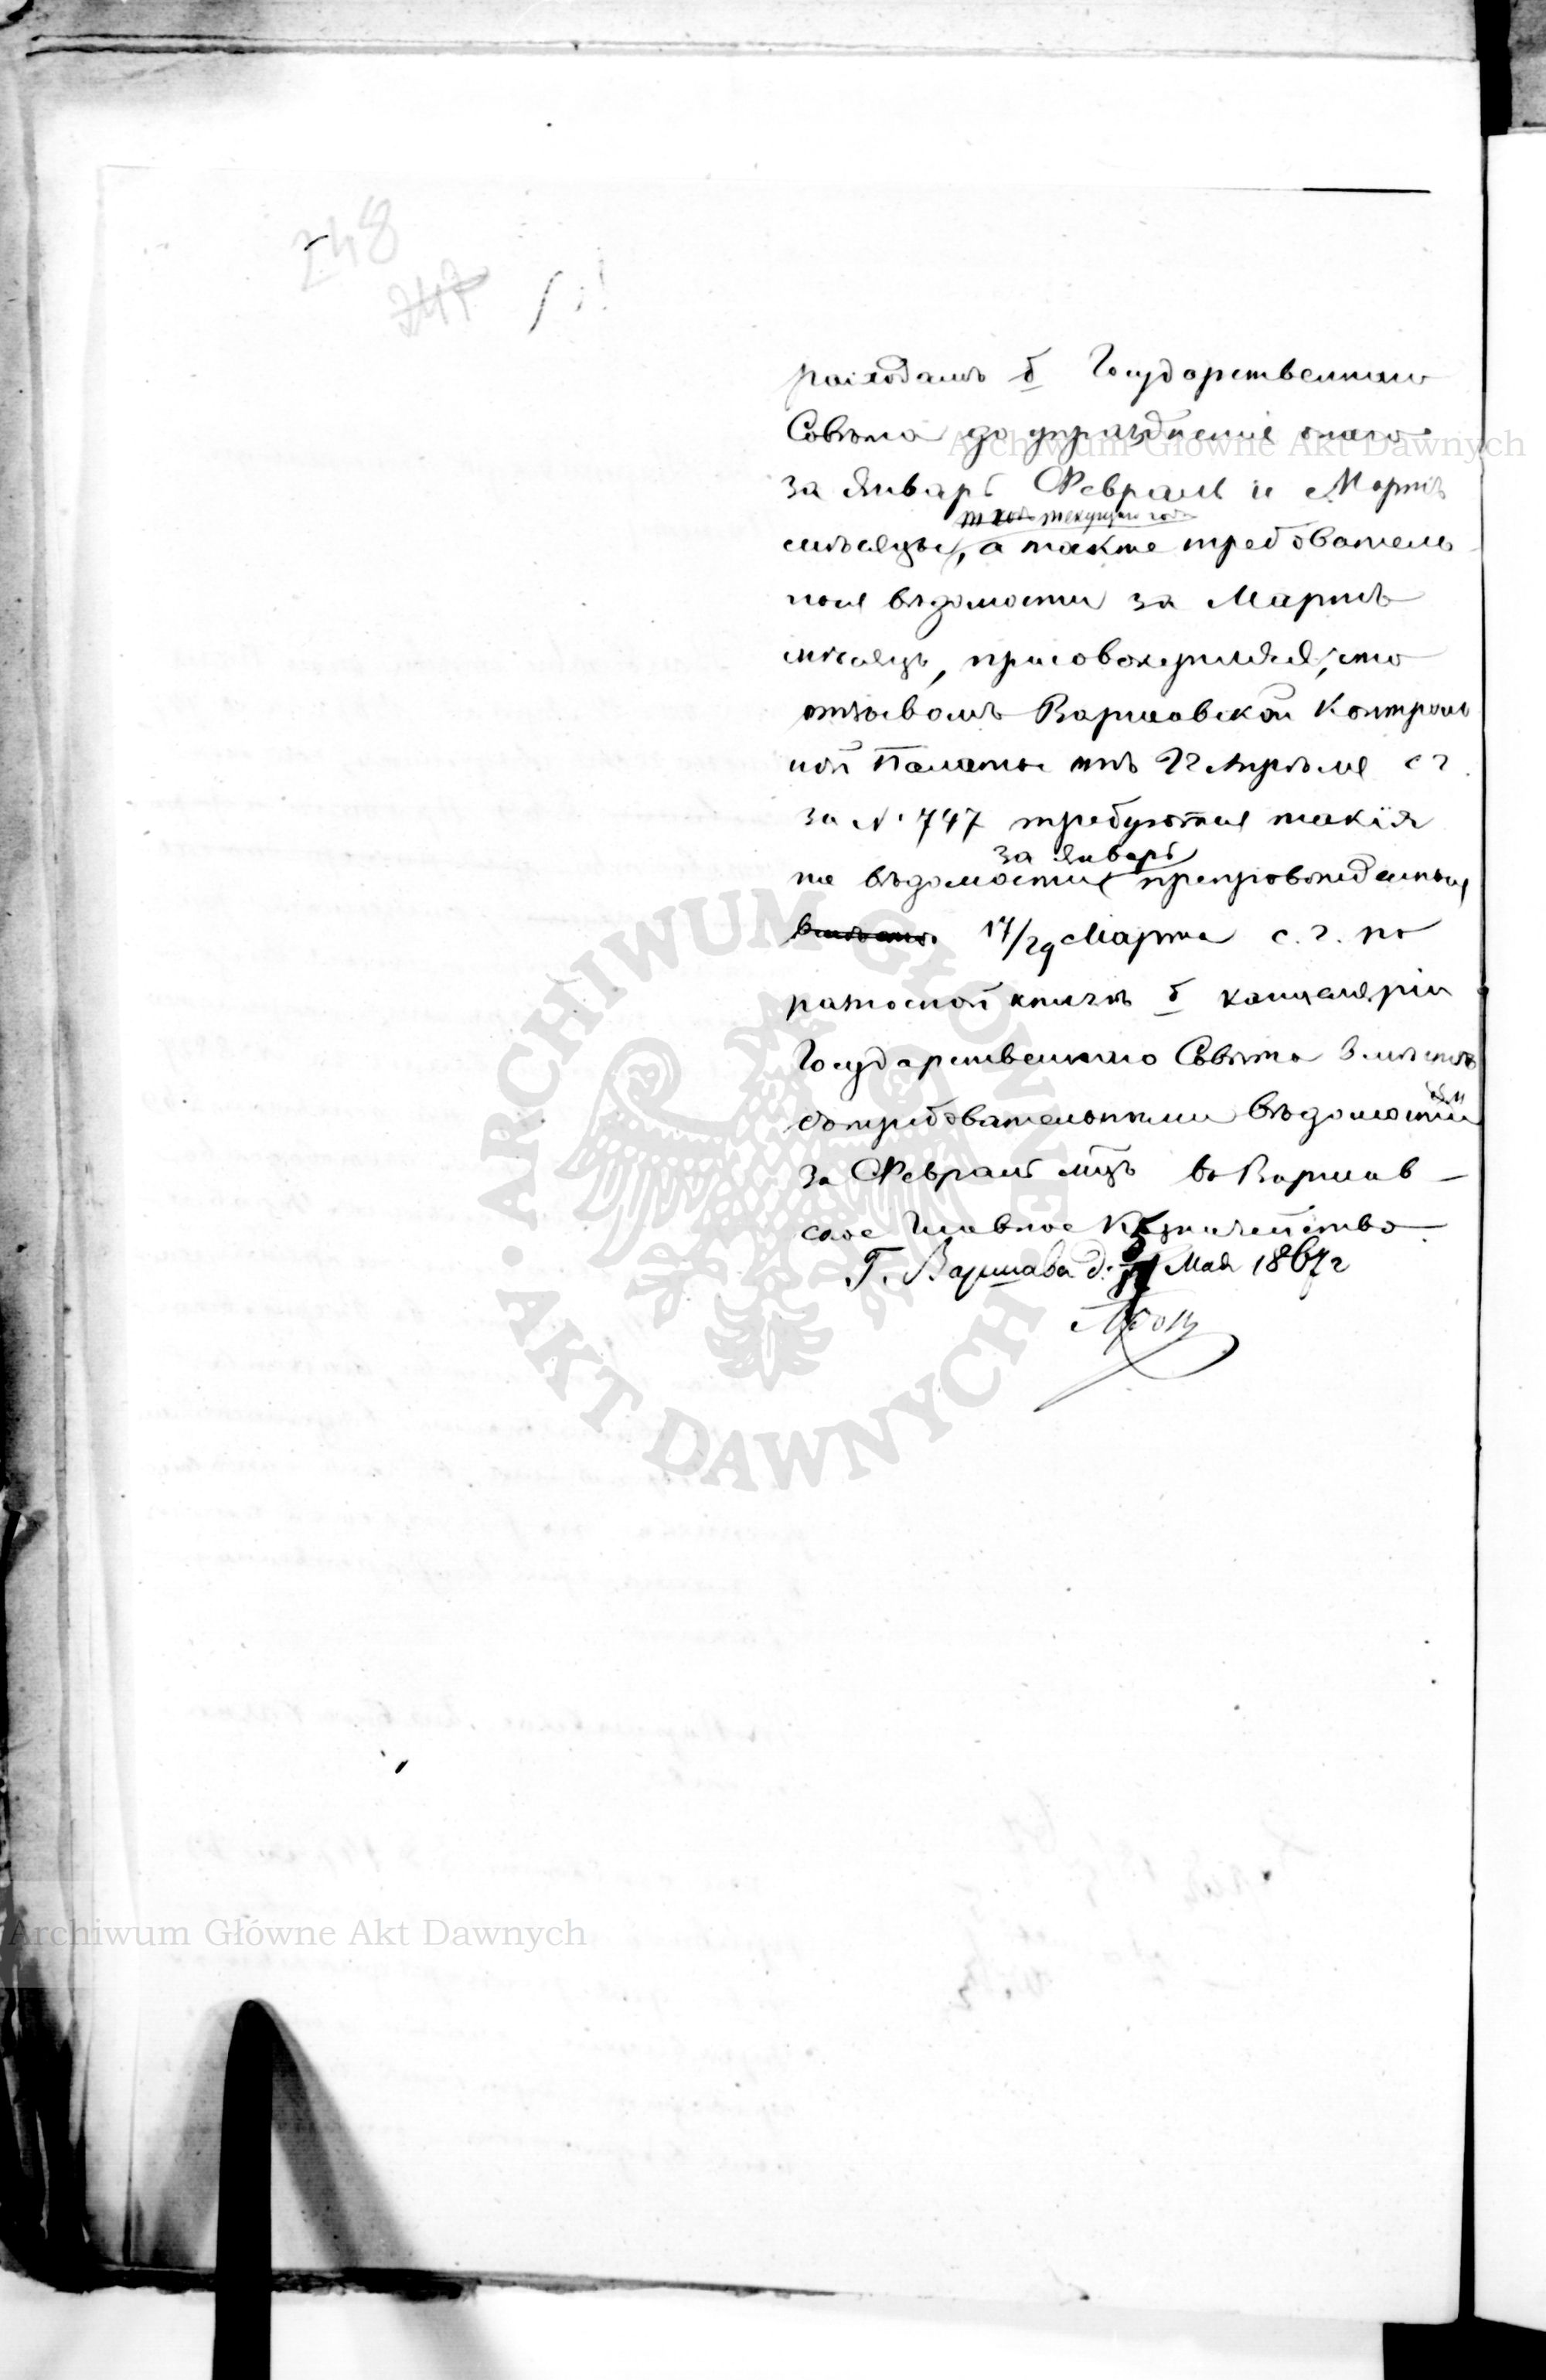 248
247
расходамъ б. Государственнаго
Совѣта до упраздненія онаго
за Январь Февраль и Мартъ
текущаго года
мѣсяцы, а также требователь
ныя вѣдомости за Мартъ
мѣсяцъ, присовокупляя, что
отзывомъ Варшавской Контроль
ной Палаты отъ 22 Апрѣля с г.
за N. 747 требуются такія
за Январь
же вѣдомости препровожденныя
17/29 Марта с. г. по
разносной книгѣ б. канцеляріи
Государственнаго Совѣта вмѣстѣ
съ требовательными вѣдомостями
за Февраль мцъ въ Варшав-
ское Главное Казначейство.
Г. Варшава д. Мая 1867 г
Archiwum Główne Akt Dawnych
ARCHIWUM GŁÓWNE AKT DAWNYCH
Archiwum Główne Akt Dawnych